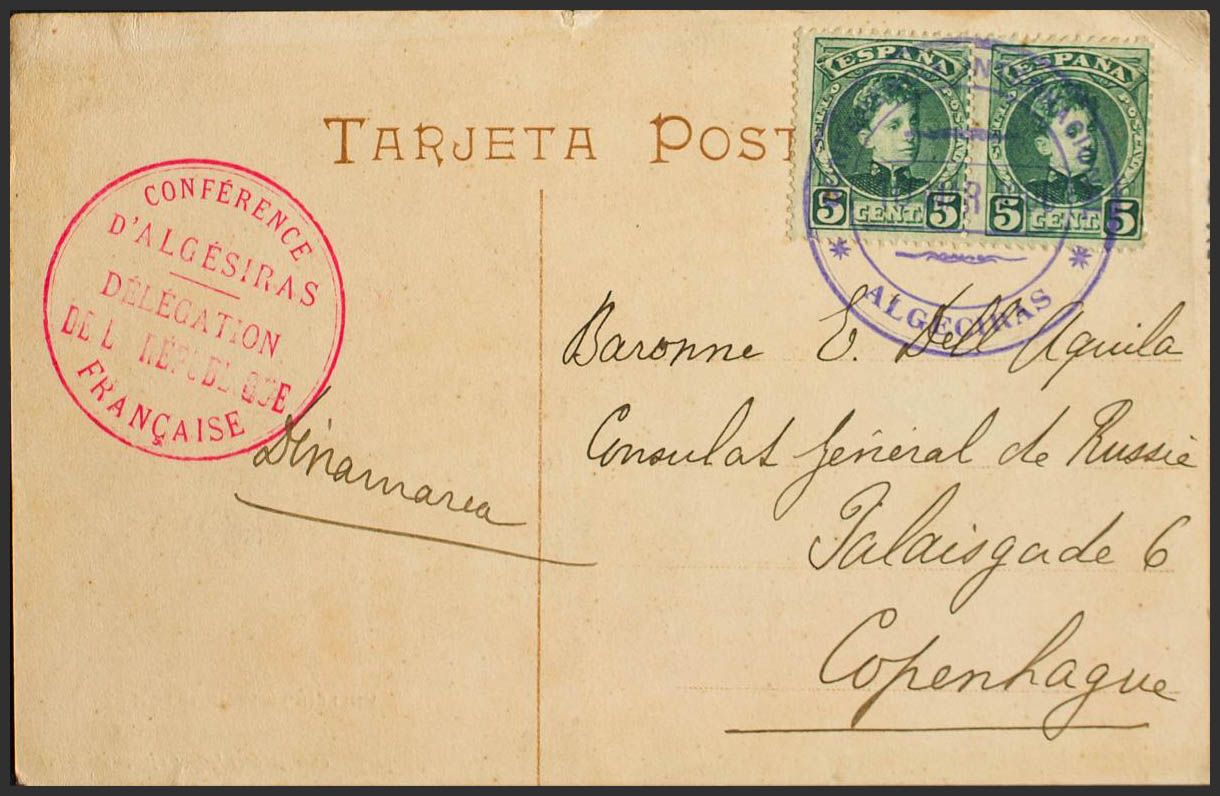 TARJETA POST
ESPAÑA
SELLO POSTAL
5 CENT. 5
ESPAÑA
5 CENT. 5
ALGECIRAS
CONFÉRENCE
D'ALGÉSIRAS
DÉLÉGATION
DE L RÉPUBLIQUE
FRANÇAISE
Dinamarca
Baronne E. Dell Aquila
Consulat général de Russie
Palaisgade 6
Copenhague